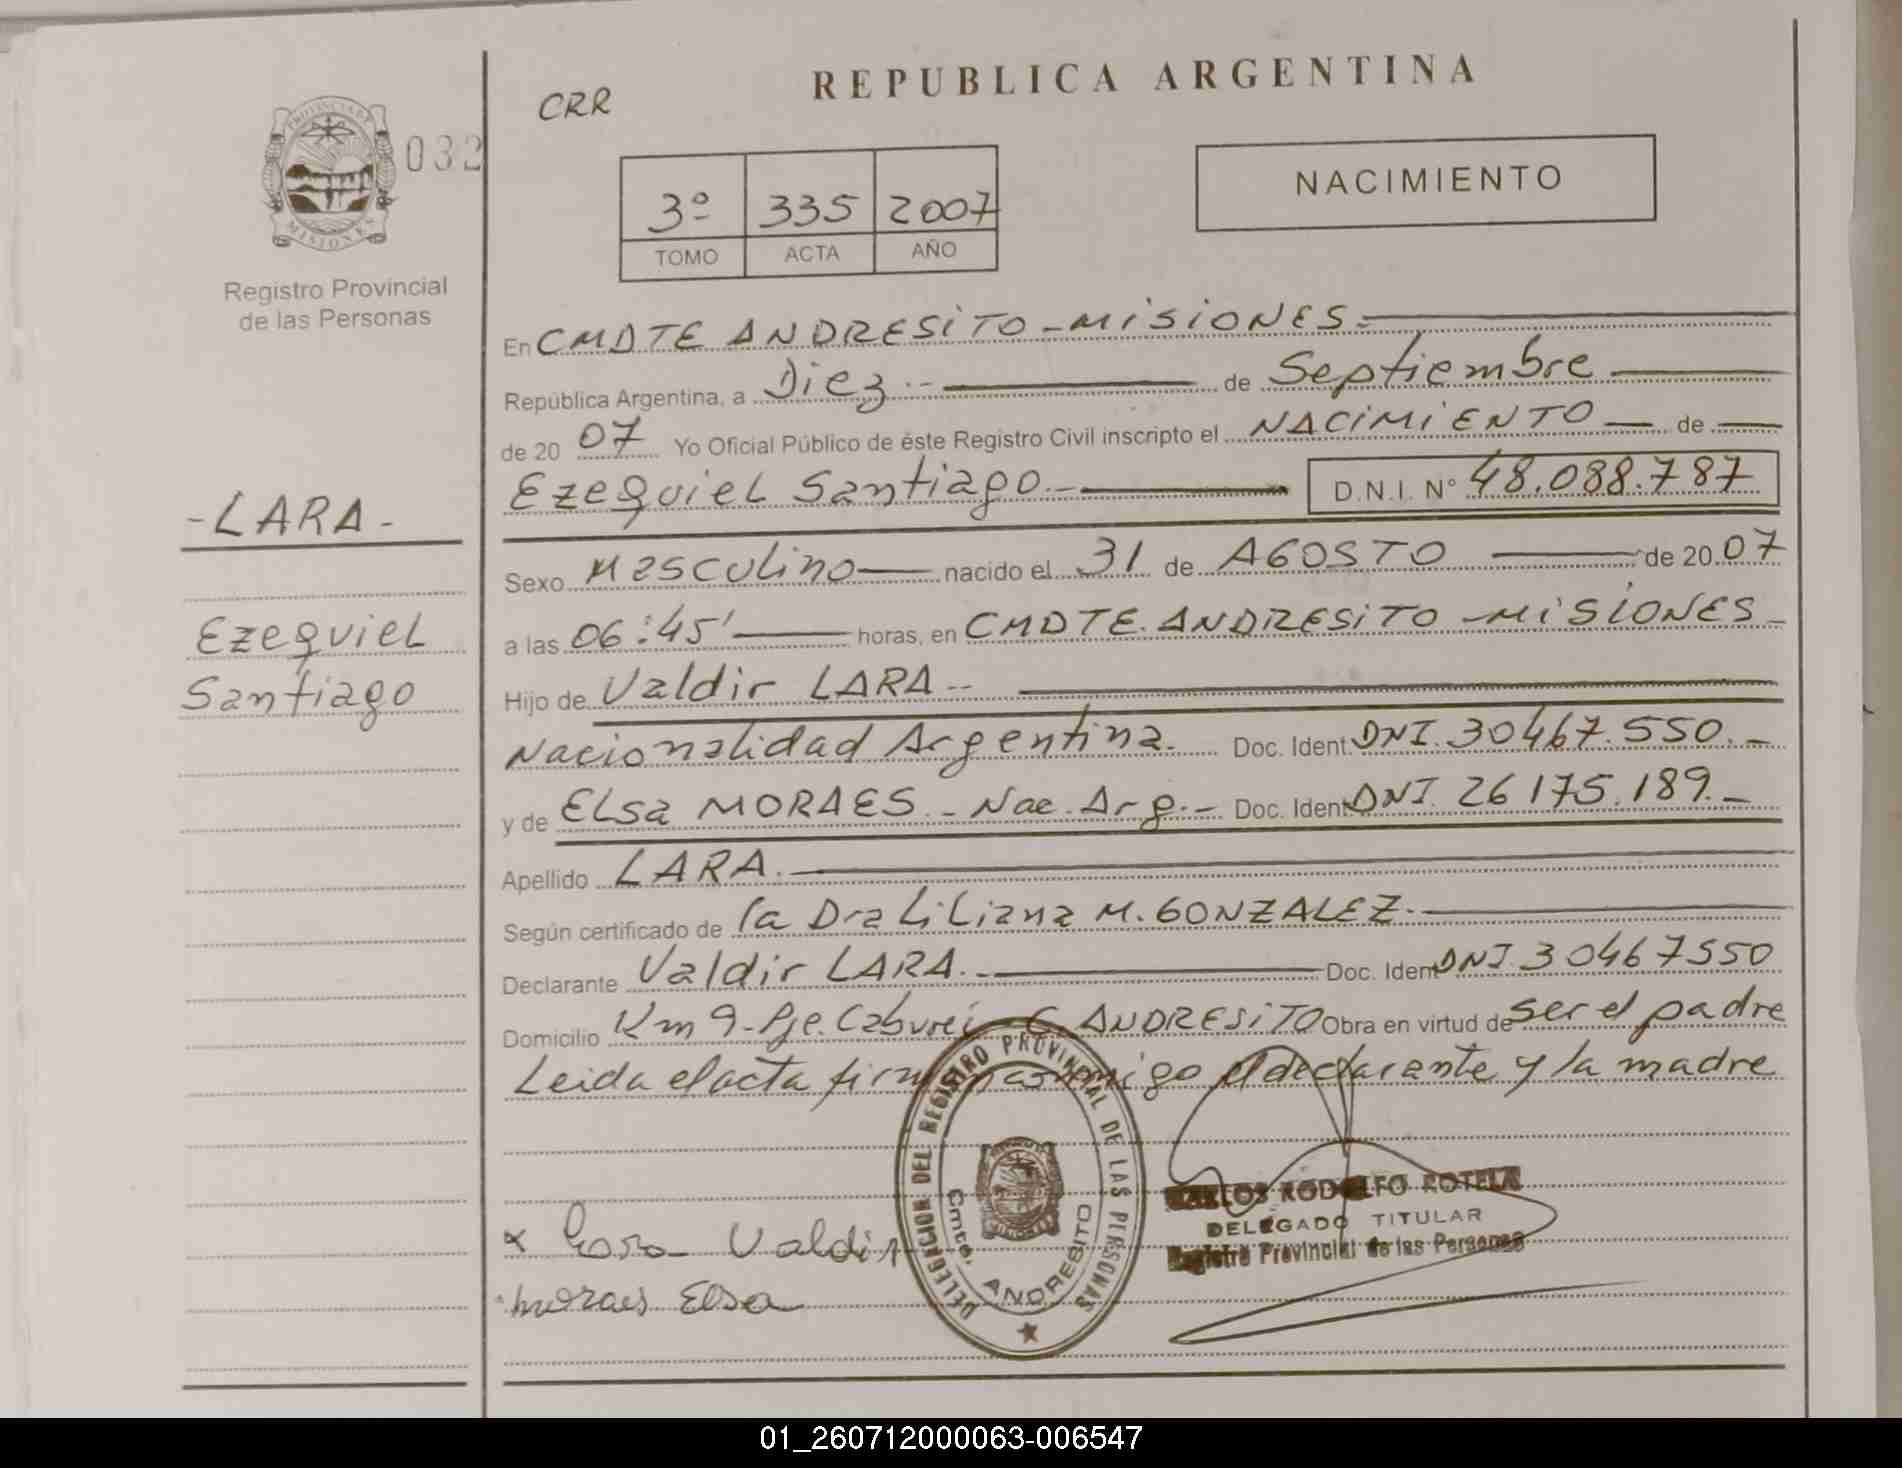 REPUBLICA ARGENTINA
CRR
PROVINCIA DE MISIONES
032
3º 335 2007
TOMO ACTA AÑO
NACIMIENTO
Registro Provincial
de las Personas
En CMDTE ANDRESITO - MISIONES.-
República Argentina, a Diez.- de Septiembre
de 20 07 Yo Oficial Público de éste Registro Civil inscripto el NACIMIENTO de
Ezequiel Santiago.- D.N.I. N° 48.088.787
- LARA -
Ezequiel
Santiago
Sexo Masculino nacido el 31 de AGOSTO de 20 07
a las 06:45' horas, en CMDTE. ANDRESITO - MISIONES -
Hijo de Valdir LARA --
Nacionalidad Argentina. Doc. Ident. DNI. 30467.550.-
y de ELSa MORAES.- Nac. Arg.- Doc. Ident. DNI. 26175.189.-
Apellido LARA.-
Según certificado de la Dra Liliana M. GONZALEZ.-
Declarante Valdir LARA.- Doc. Ident DNI. 30467550
Domicilio Km 9 - Pje. Caburei - C. ANDRESITO Obra en virtud de ser el padre
Leida el acta firman conmigo el declarante y la madre
DELEGACION DEL REGISTRO PROVINCIAL DE LAS PERSONAS
Cmte. ANDRESITO
CARLOS RODOLFO ROTELA
DELEGADO TITULAR
Registro Provincial de las Personas
x Lara Valdir
moraes Elsa
01_260712000063-006547